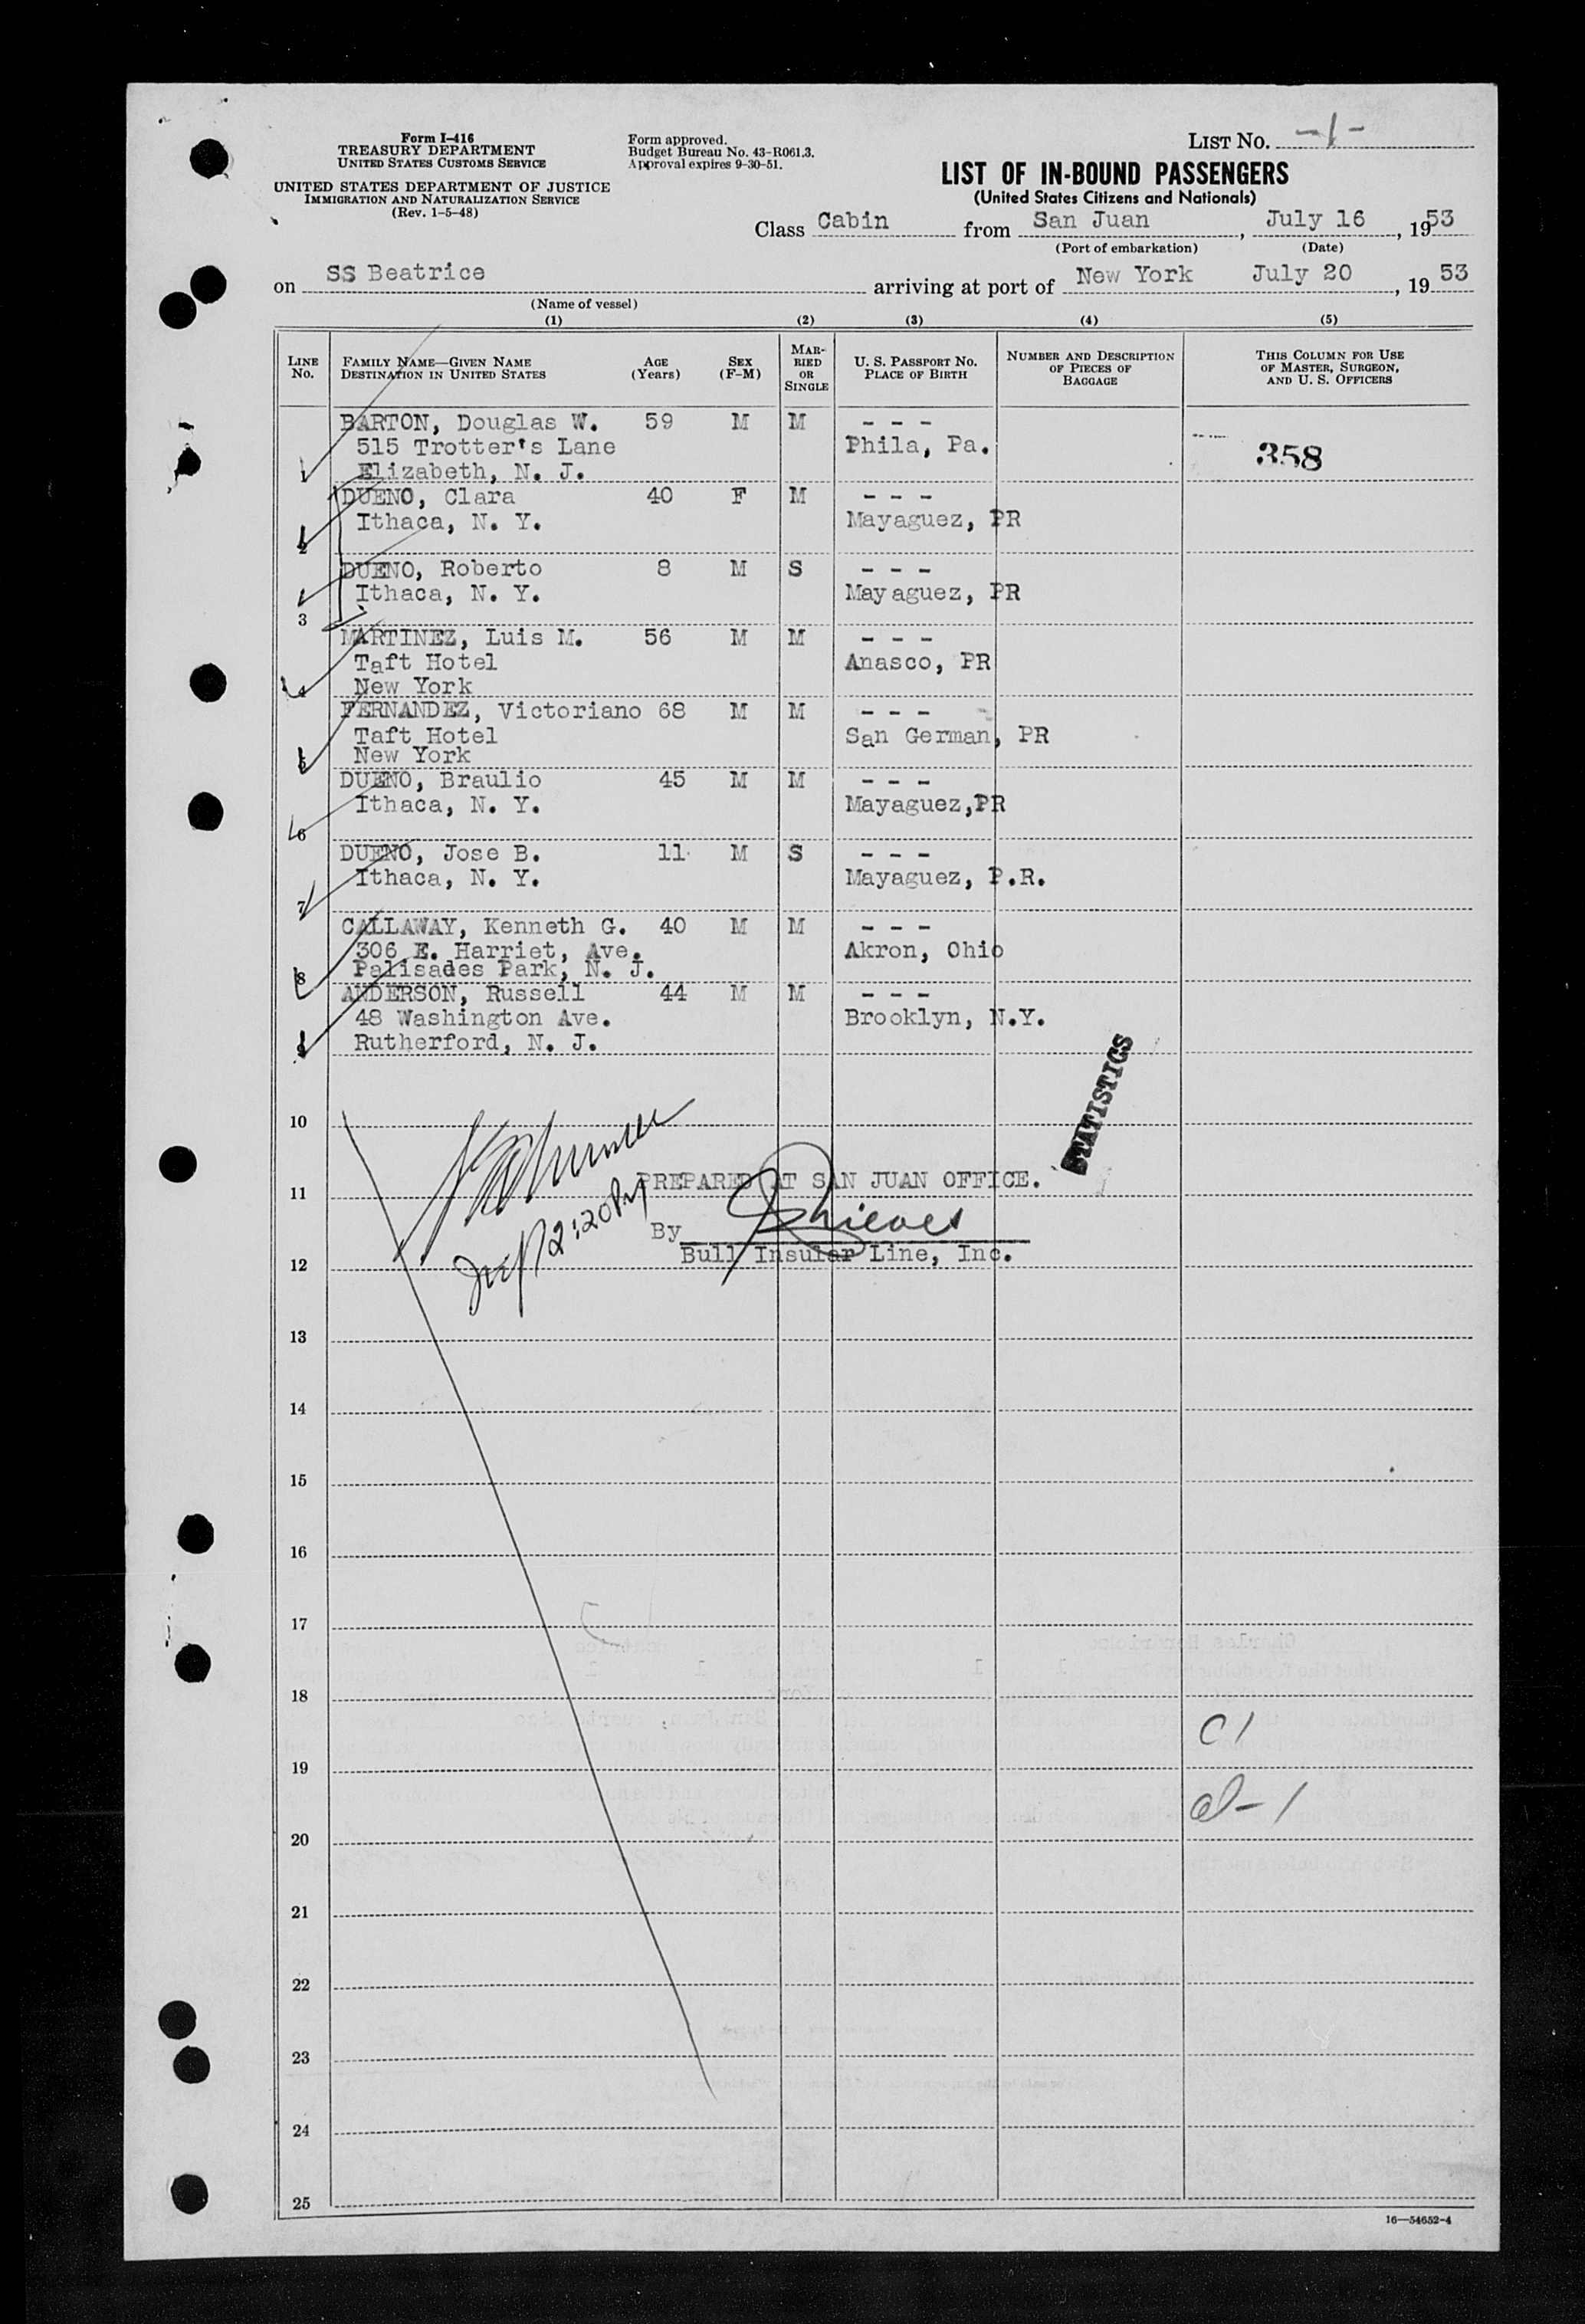 Form I-416
TREASURY DEPARTMENT
UNITED STATES CUSTOMS SERVICE
UNITED STATES DEPARTMENT OF JUSTICE
IMMIGRATION AND NATURALIZATION SERVICE
(Rev. 1-5-48)
Form approved.
Budget Bureau No. 43-R061.3.
Approval expires 9-30-51.
LIST No. -1-
LIST OF IN-BOUND PASSENGERS
(United States Citizens and Nationals)
Class Cabin from San Juan, July 16, 1953
(Port of embarkation) (Date)
on SS Beatrice arriving at port of New York July 20, 1953
(Name of vessel)
(1) (2) (3) (4) (5)
LINE No. FAMILY NAME—GIVEN NAME DESTINATION IN UNITED STATES AGE (Years) SEX (F-M) MARRIED OR SINGLE U. S. PASSPORT No. PLACE OF BIRTH NUMBER AND DESCRIPTION OF PIECES OF BAGGAGE THIS COLUMN FOR USE OF MASTER, SURGEON, AND U. S. OFFICERS
BARTON, Douglas W. 59 M M - - -
515 Trotter's Lane Phila, Pa. 358
1 Elizabeth, N. J.
DUENO, Clara 40 F M - - -
Ithaca, N. Y. Mayaguez, PR
2
DUENO, Roberto 8 M S - - -
Ithaca, N. Y. Mayaguez, PR
3
MARTINEZ, Luis M. 56 M M - - -
Taft Hotel Anasco, PR
4 New York
FERNANDEZ, Victoriano 68 M M - - -
Taft Hotel San German, PR
5 New York
DUENO, Braulio 45 M M - - -
Ithaca, N. Y. Mayaguez,PR
6
DUENO, Jose B. 11 M S - - -
Ithaca, N. Y. Mayaguez, P.R.
7
CALLAWAY, Kenneth G. 40 M M - - -
306 E. Harriet, Ave. Akron, Ohio
8 Palisades Park, N. J.
ANDERSON, Russell 44 M M - - -
48 Washington Ave. Brooklyn, N.Y.
9 Rutherford, N. J.
STATISTICS
10
PREPARED AT SAN JUAN OFFICE.
11
2:20 PM
By Nieves
Bull Insular Line, Inc.
12
13
14
15
16
17
18
C1
19
20
21
22
23
24
25
16—54652-4